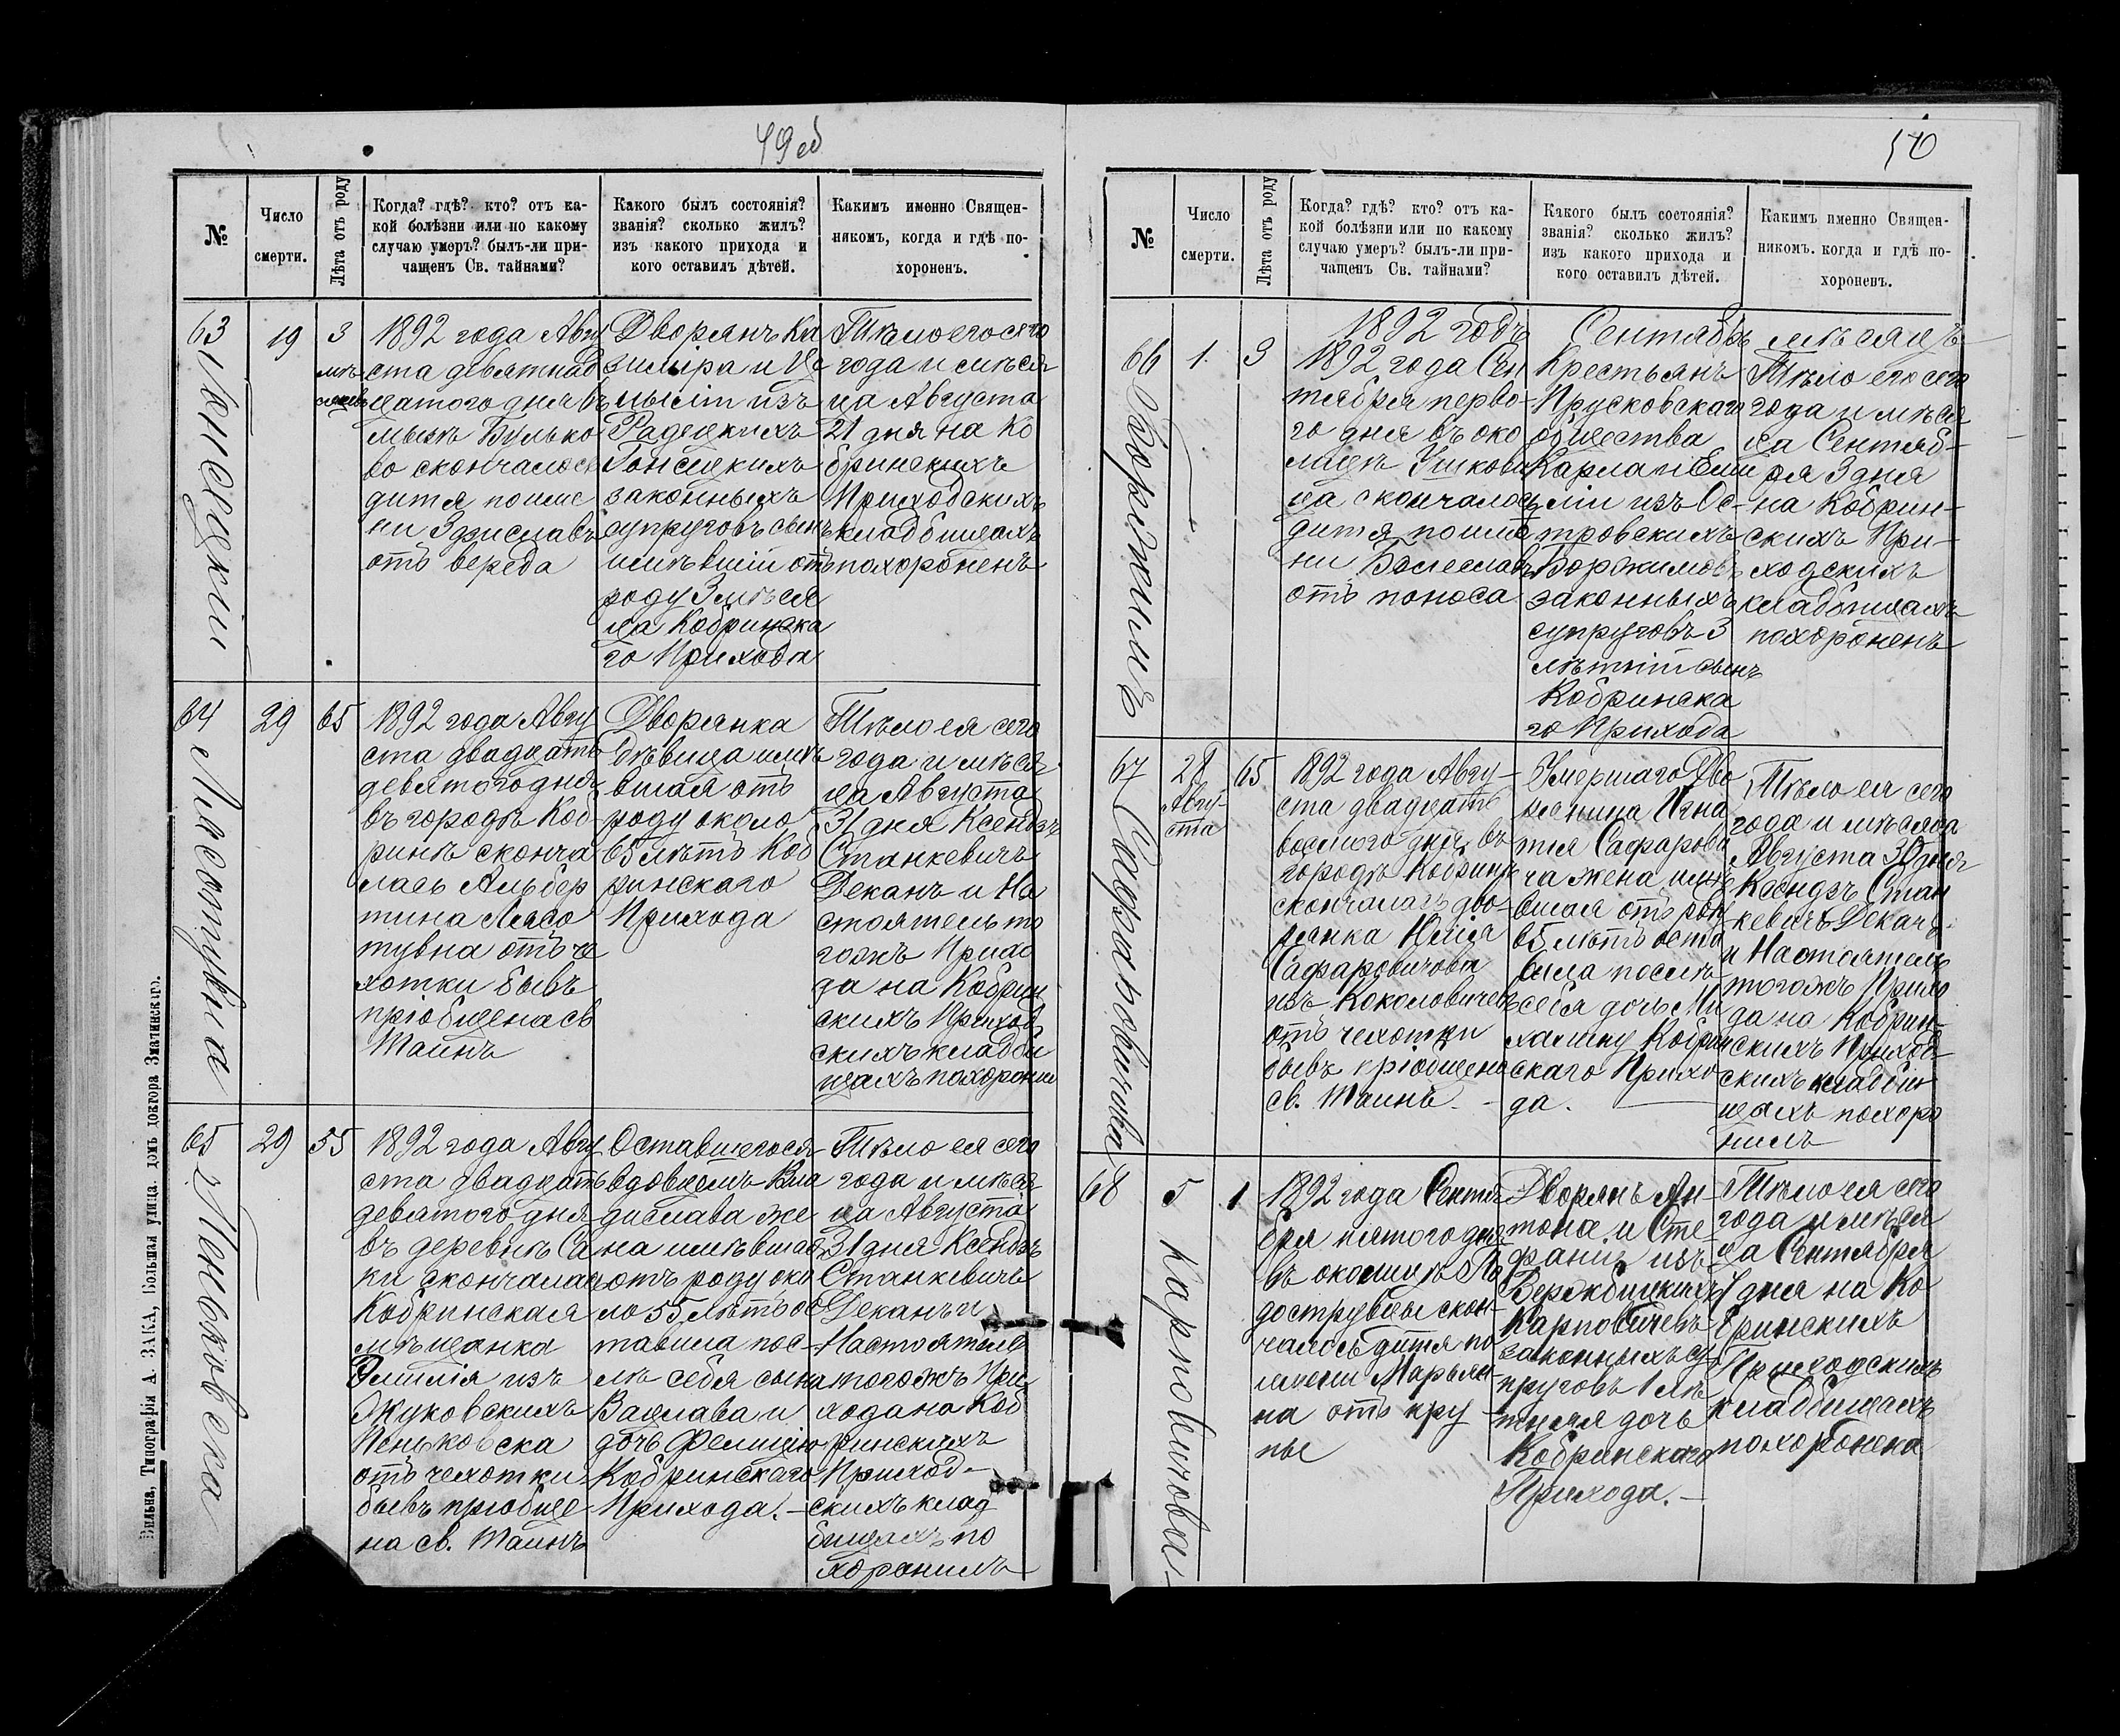 49 об
№
Число
смерти.
Лѣта отъ роду
Когда? гдѣ? кто? отъ ка-
кой болѣзни или по какому
случаю умеръ? былъ-ли при-
чащенъ Св. тайнами?
Какого былъ состоянія?
званія? сколько жилъ?
изъ какого прихода и
кого оставилъ дѣтей.
Какимъ именно Священ-
никомъ, когда и гдѣ по-
хороненъ.
63
19
3
мѣ
сяцевъ
1892 года Авгу
ста девятнад
цатого дня въ
Булько
во скончалось
дитя по име
ни Здзиславъ
отъ вереда
Дворянъ Ка
зиміра и
изъ
Радецкихъ
законныхъ
супруговъ сынъ
имѣвшій отъ
роду 3 мѣся
ца Кобринска
го Прихода
Тѣло его сего
года и мѣся
ца Августа
21 дня на Ко
бринскихъ
Приходскихъ
кладбищахъ
похороненъ
64
Ласотувна
29
65
1892 года Авгу
ста двадцать
девятого дня
въ городѣ Коб
ринѣ сконча
лась Альбер
тина Ласо
тувна отъ ча
хотки бывъ
пріобщена св
Таинъ
Дворянка
дѣвица имѣ
вшая отъ
роду около
65 лѣтъ Коб
ринскаго
Прихода
Тѣло ея сего
года и мѣся
ца Августа
31 дня Ксендзъ
Станкевичъ
Деканъ и На
стоятель то
гожъ Прихо
да на Кобрин
скихъ Приход
скихъ кладби
щахъ похоронил
65
Пеньковска
29
55
1892 года Авгу
ста двадцать
девятого дня
въ деревнѣ Са
ки скончалась
Кобринская
мѣщанка
Эмилія изъ
Жуковскихъ
Пеньковска
отъ чахотки
бывъ пріобще
на св. Таинъ
Оставшегося
вдовцемъ Вла
дислава же
на имѣвшая
отъ роду око
ло 55 лѣтъ ос
тавила пос-
лѣ себя сына
Вацлава и
дочь Фелицію
Кобринскаго
Прихода.-
Тѣло ея сего
года и мѣся
ца Августа
31 дня Ксендзъ
Станкевичъ
Деканъ и
Настоятель
тогожъ При
хода на Коб
ринскихъ
Приход-
скихъ клад
бищахъ по
хоронилъ
Вильна, Типографія А. ЗАКА, Большая улица. домъ доктора Зматинскаго.
50
№
Число
смерти.
Лѣта отъ роду
Когда? гдѣ? кто? отъ ка-
кой болѣзни или по какому
случаю умеръ? былъ-ли при-
чащенъ Св. тайнами?
Какого былъ состоянія?
званія? сколько жилъ?
изъ какого прихода и
кого оставилъ дѣтей.
Какимъ именно Священ-
никомъ. когда и гдѣ по-
хороненъ.
1892 годъ Сентябрь мѣсяцъ
66
Боржимъ
1.
3
1892 года Сен
тября перво-
го дня въ око
лицѣ
ца скончалось
дитя по име
ни Болеславъ
отъ поноса
Крестьянъ
Прусковскаго
общества
Карла и Еми
ліи изъ Ос-
тровскихъ
Боржимовъ
законныхъ
супруговъ 3
лѣтній сынъ
Кобринска
го Прихода
Тѣло его сего
года и мѣся
ца Сентяб-
ря 3 дня
на Кобрин-
скихъ При-
ходскихъ
кладбищахъ
похороненъ
67
Сафаровичова
28
Авгу
ста
65
1892 года Авгу-
ста двадцать
восмого дня въ
городѣ Кобринѣ
скончалась дво-
рянка Юлія
Сафаровичова
изъ Коколовичевъ
отъ чехотки
бывъ пріобщена
св. Таинъ.-
Умершаго Дво
рянина Игна
тія Сафарови
ча жена имѣ
вшая отъ роду
65 лѣтъ оста
вила послѣ
себя дочь Ми
халину Кобрин
скаго Прихо
да.
Тѣло ея сего
года и мѣсяца
Августа 30 дня
Ксендзъ Стан
кевичъ Деканъ
и Настоятель
тогожъ Прихо
да на Кобрин-
скихъ Приход-
скихъ кладби
щахъ похоро
нилъ
68
Карповичова
5
1
1892 года Сентя
бря пятого дня
въ околицѣ
скон-
чалось дитя по
имени Марьян
на отъ кру
пы
Дворянъ Ан-
тона и Сте-
фаніи изъ
Карповичевъ
законныхъ су
пруговъ 1 лѣ
тняя дочь
Кобринскаго
Прихода.-
Тѣло ея сего
года и мѣся
ца Сентября
7 дня на Ко
бринскихъ
Приходскихъ
кладбищахъ
похоронена